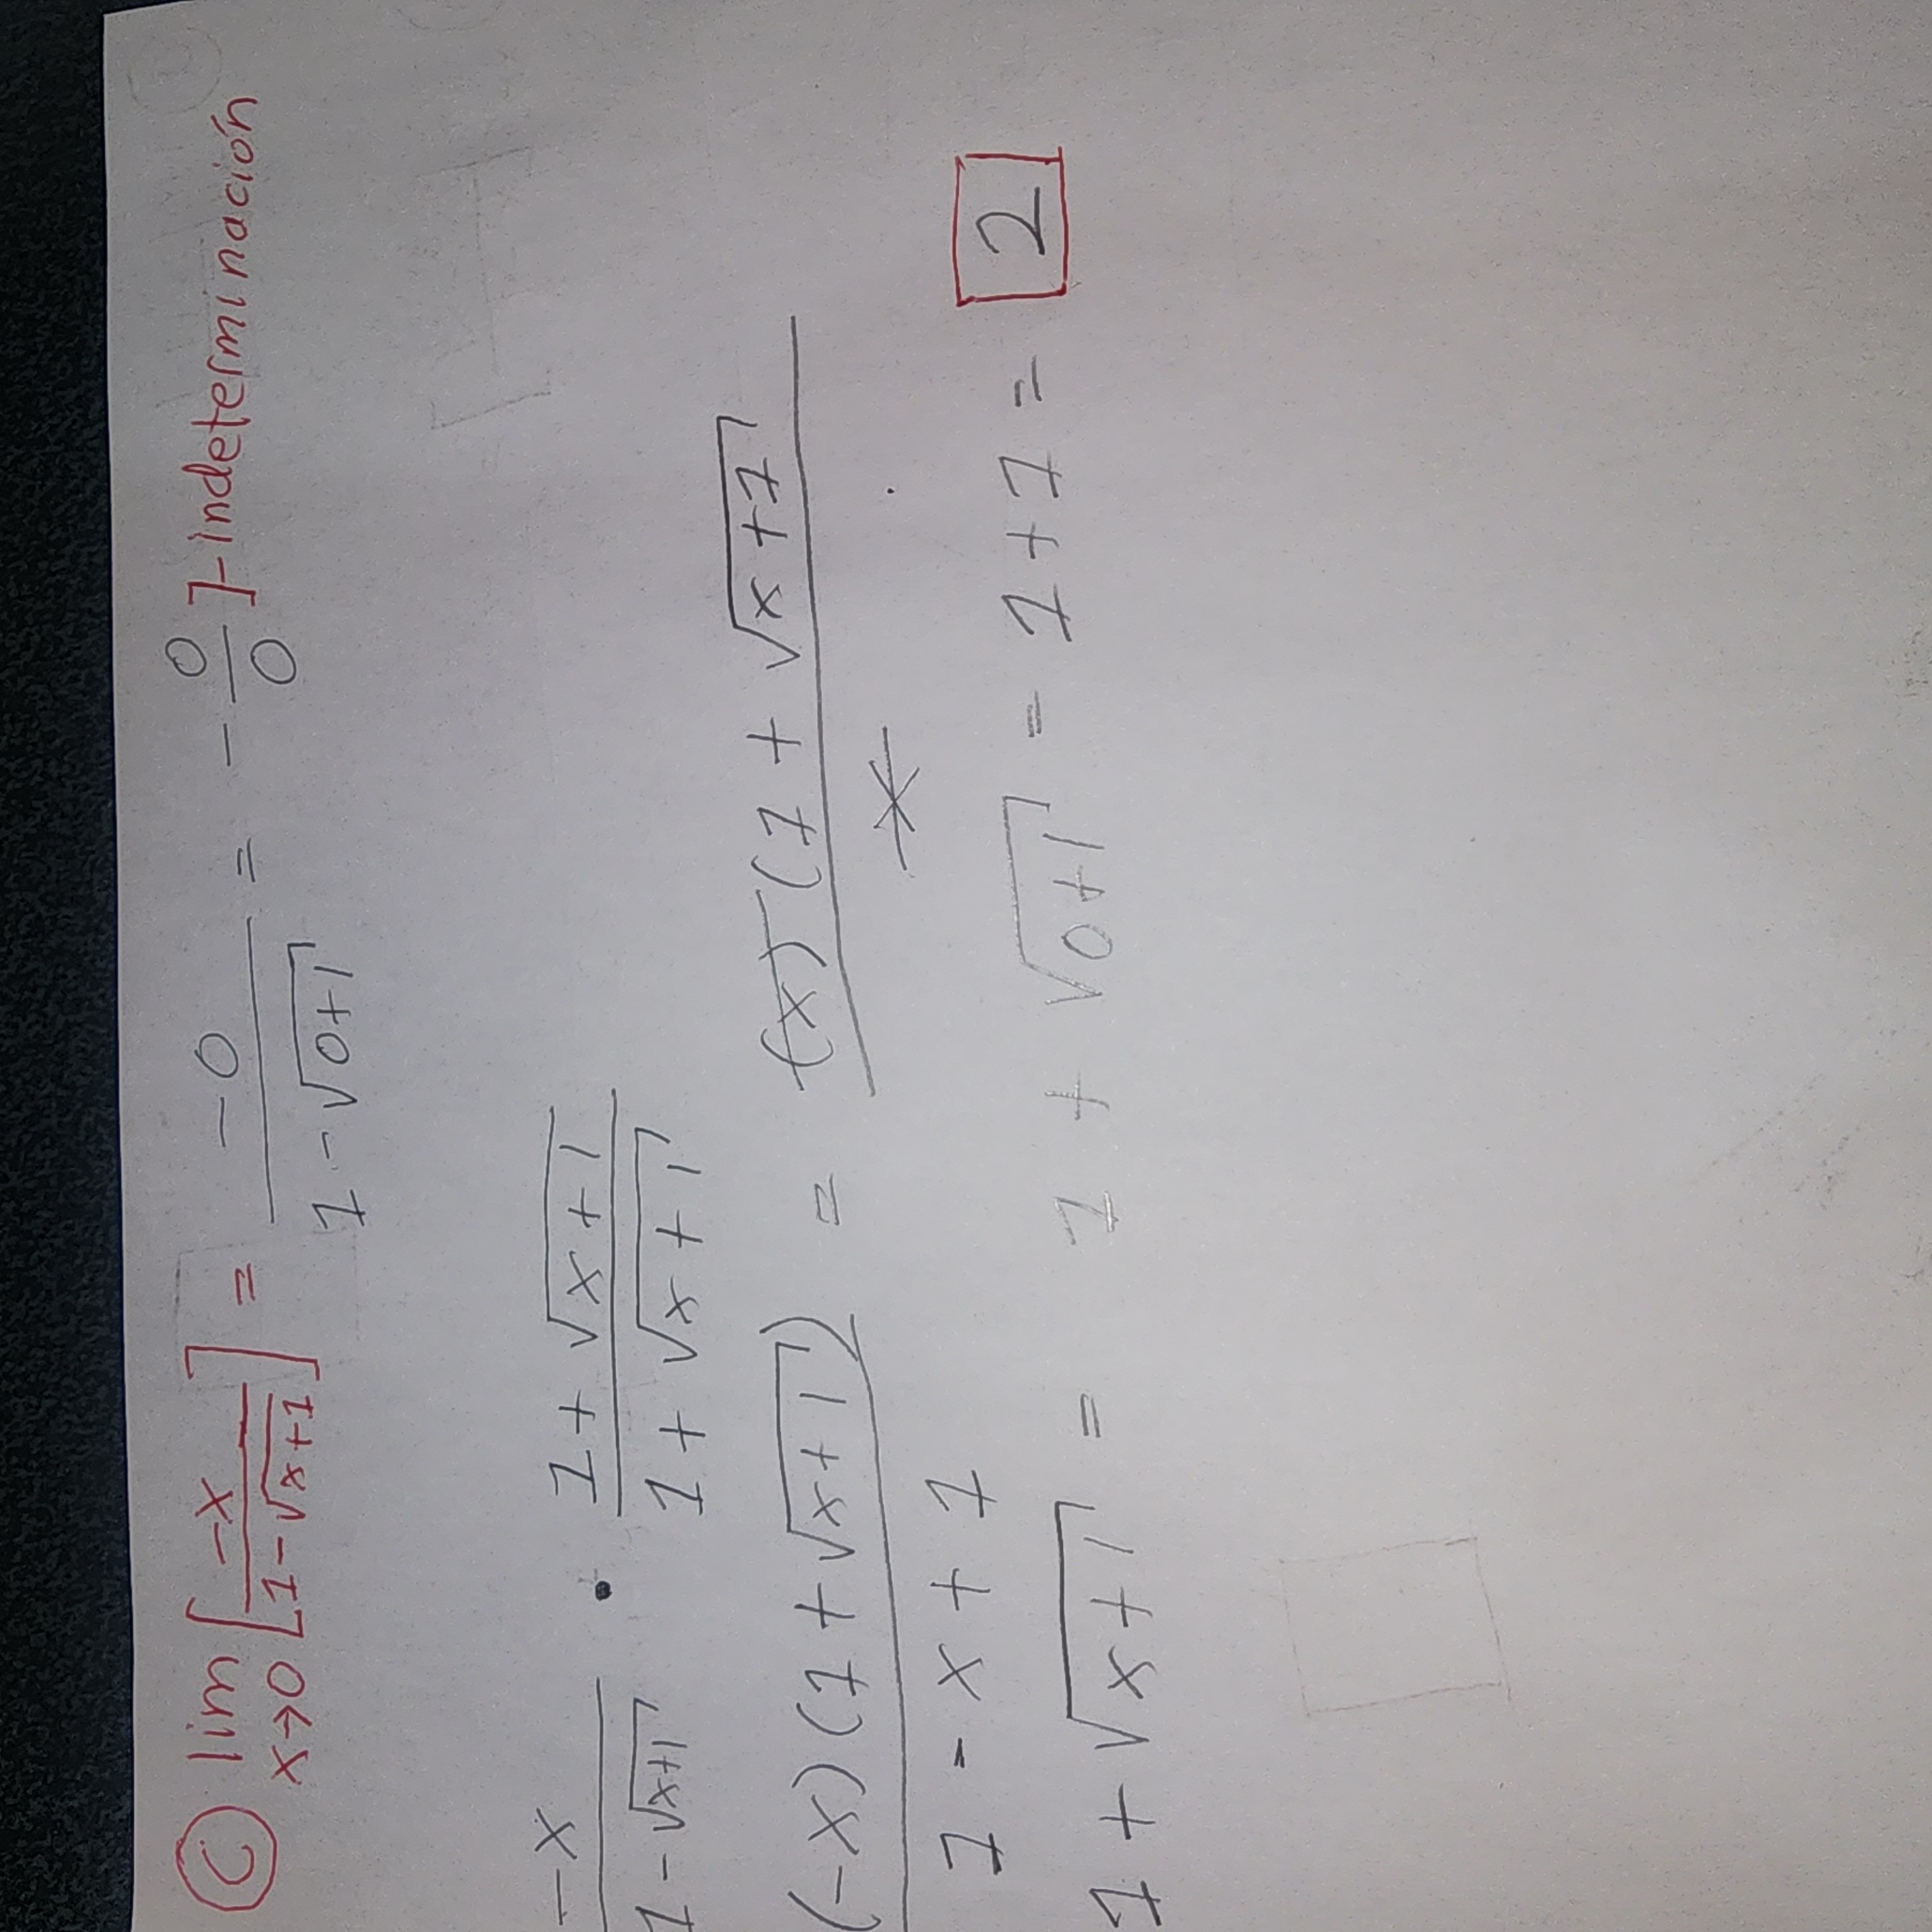 C lim x→0 [-x / 1-√x+1] = -0 / 1-√0+1 = -0/0 ]-indeterminación
-x / 1-√x+1 · 1+√x+1 / 1+√x+1
(-x)(1+√x+1) / 1-x+1 = (-x)(1+√x+1 / -x
1+√x+1 = 1+√0+1 = 1+1 = 2